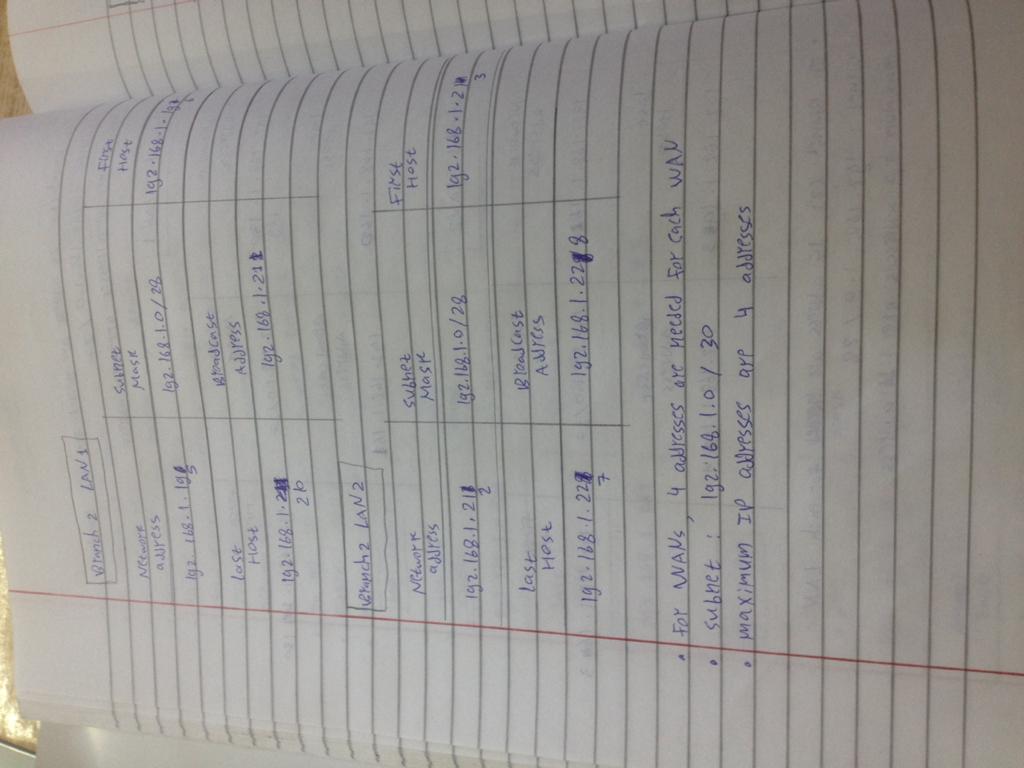 Branch 2 LAN1
Network address
Subnet Mask
First Host
192.168.1.195
192.168.1.0/28
192.168.1.196
Last Host
Broadcast Address
192.168.1.210
192.168.1.211
Branch2 LAN2
Network address
Subnet Mask
First Host
192.168.1.212
192.168.1.0/28
192.168.1.213
Last Host
Broadcast Address
192.168.1.227
192.168.1.228
• For WANs, 4 addresses are needed for each WAN
• subnet : 192.168.1.0/30
• maximum IP addresses are 4 addresses